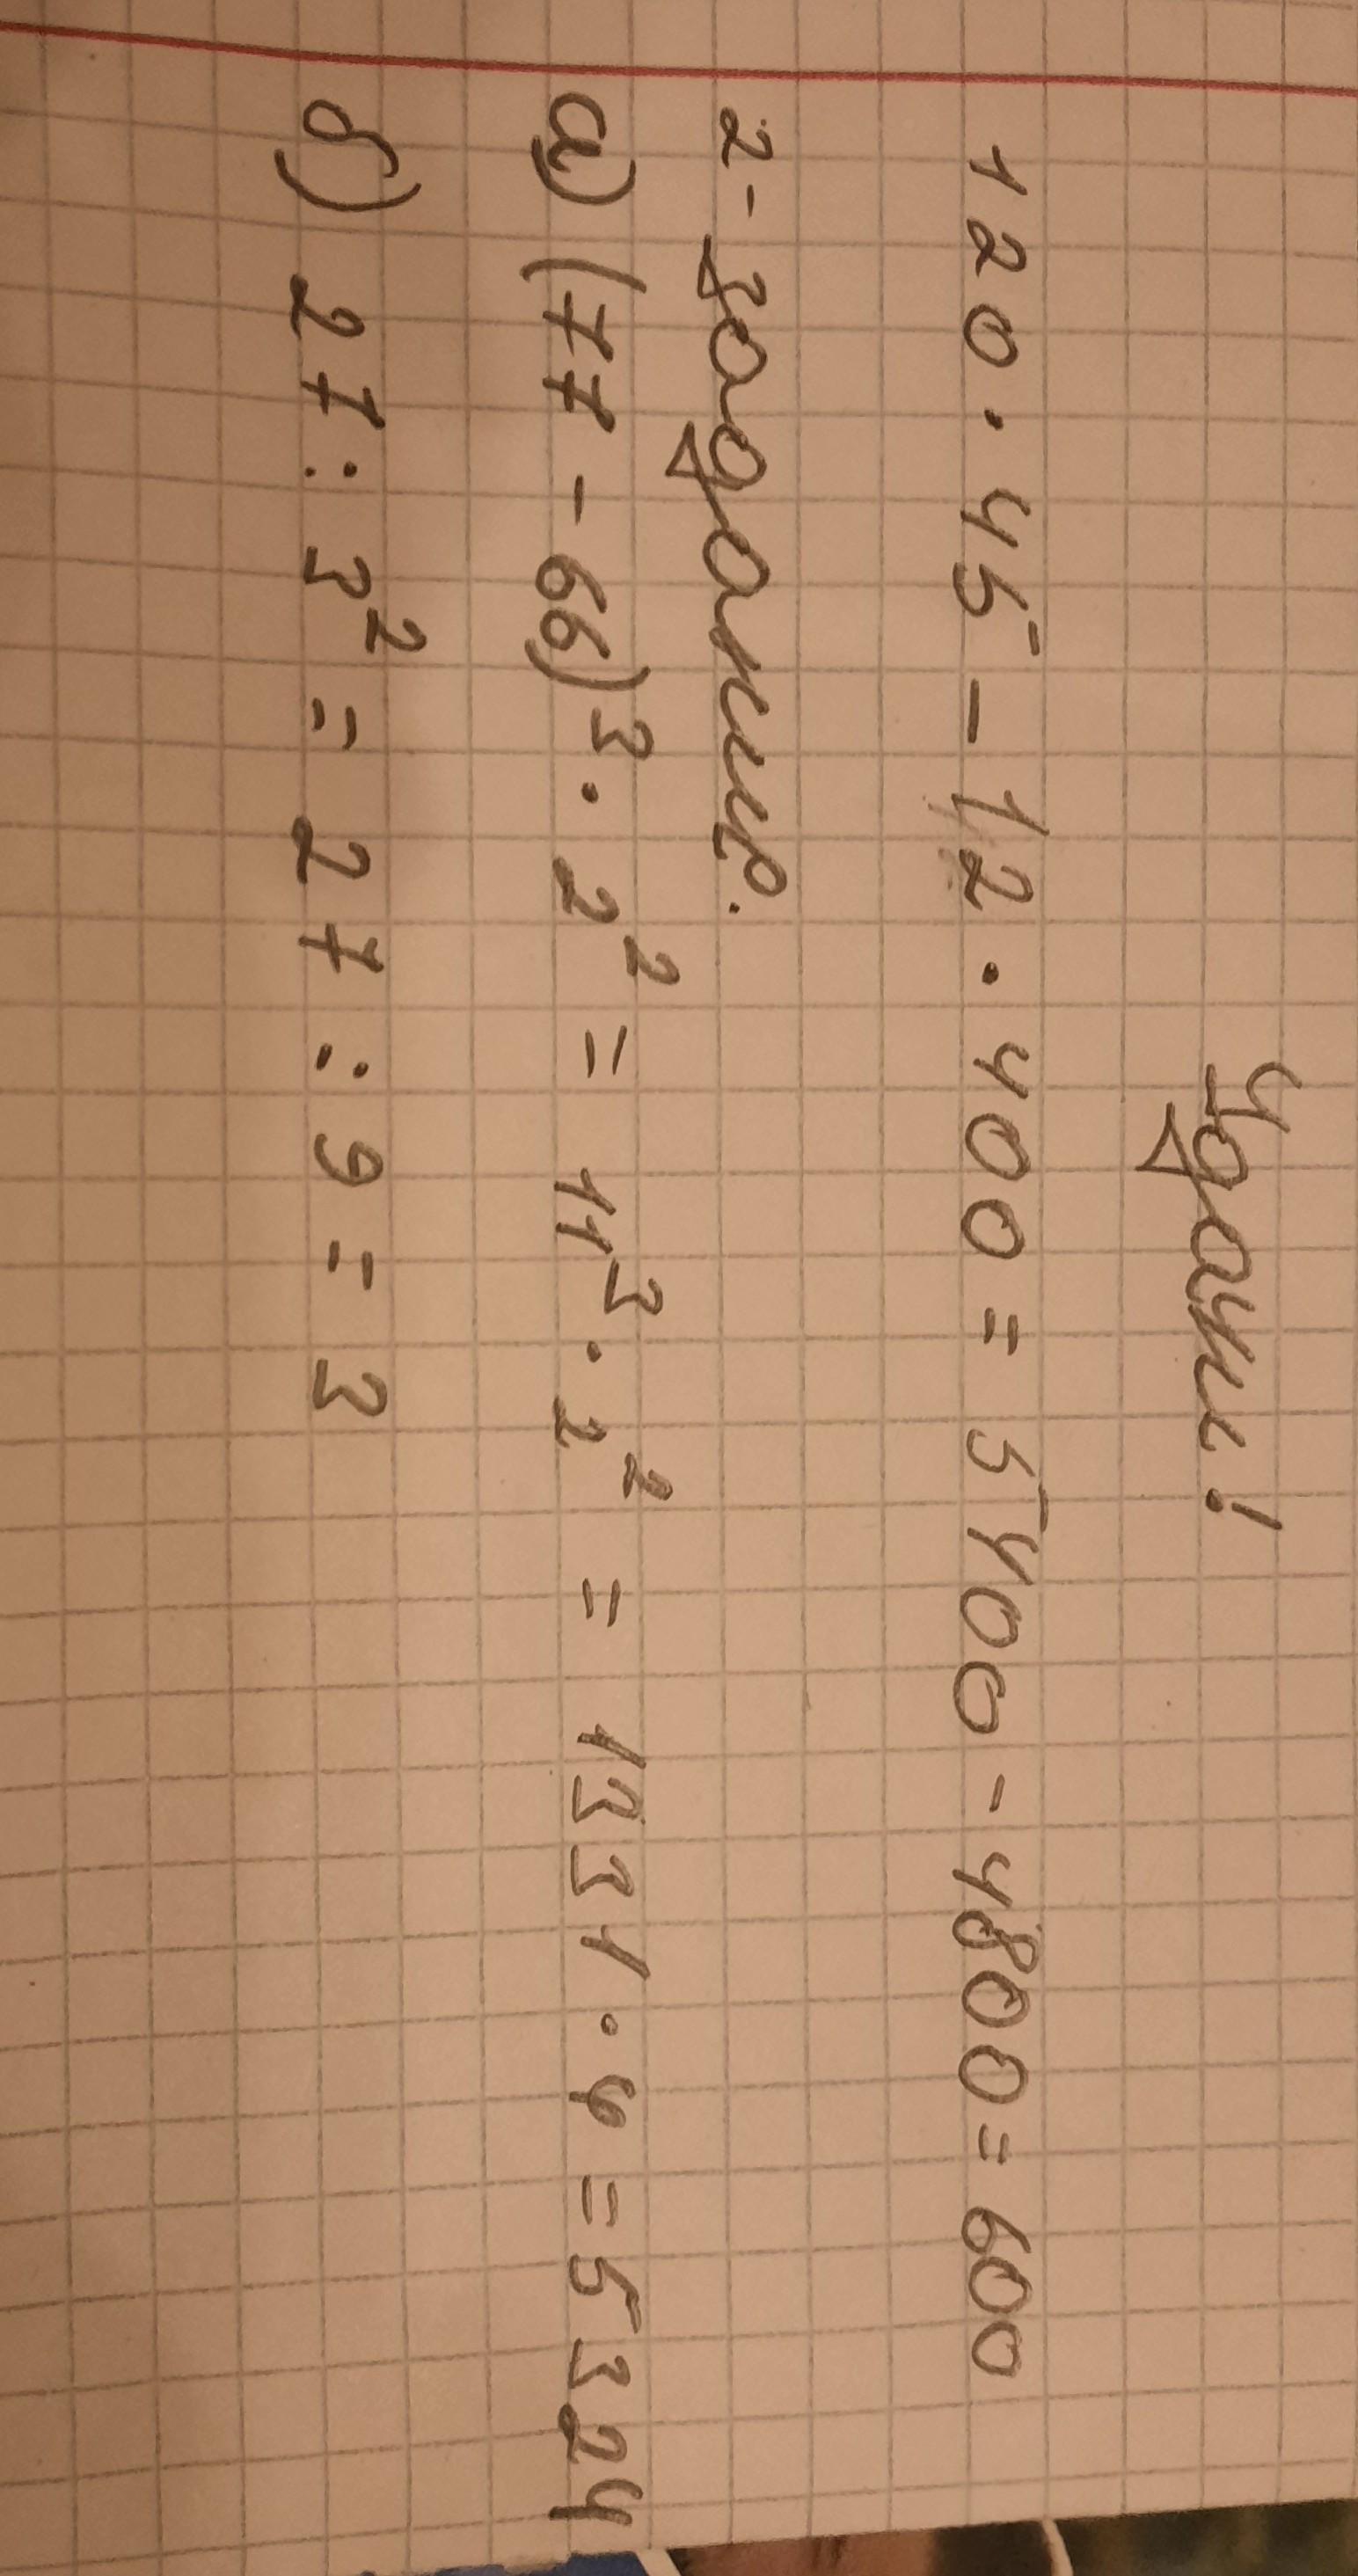 Удачи!
120 · 45 - 12 · 400 = 5400 - 4800 = 600
2 - задание.
а) (77 - 66)³ · 2² = 11³ · 2² = 1331 · 4 = 5324
б) 27 : 3² = 27 : 9 = 3